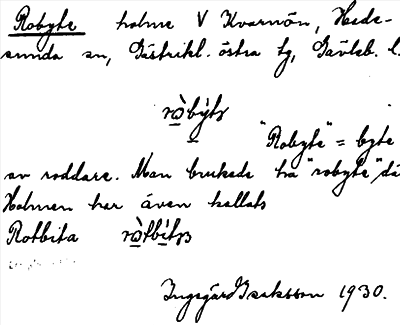 Robyte holme V Kvarnön, Hede-
sunda sn, Gästrikl. östra tg, Gävleb. l.
rὼbỳtə
"Robyte" = byte
av roddare. Man brukade ha "robyte" då
Holmen har även kallats
Rotbita rὼtbìtɜ
Ingegärd Isaksson 1930.